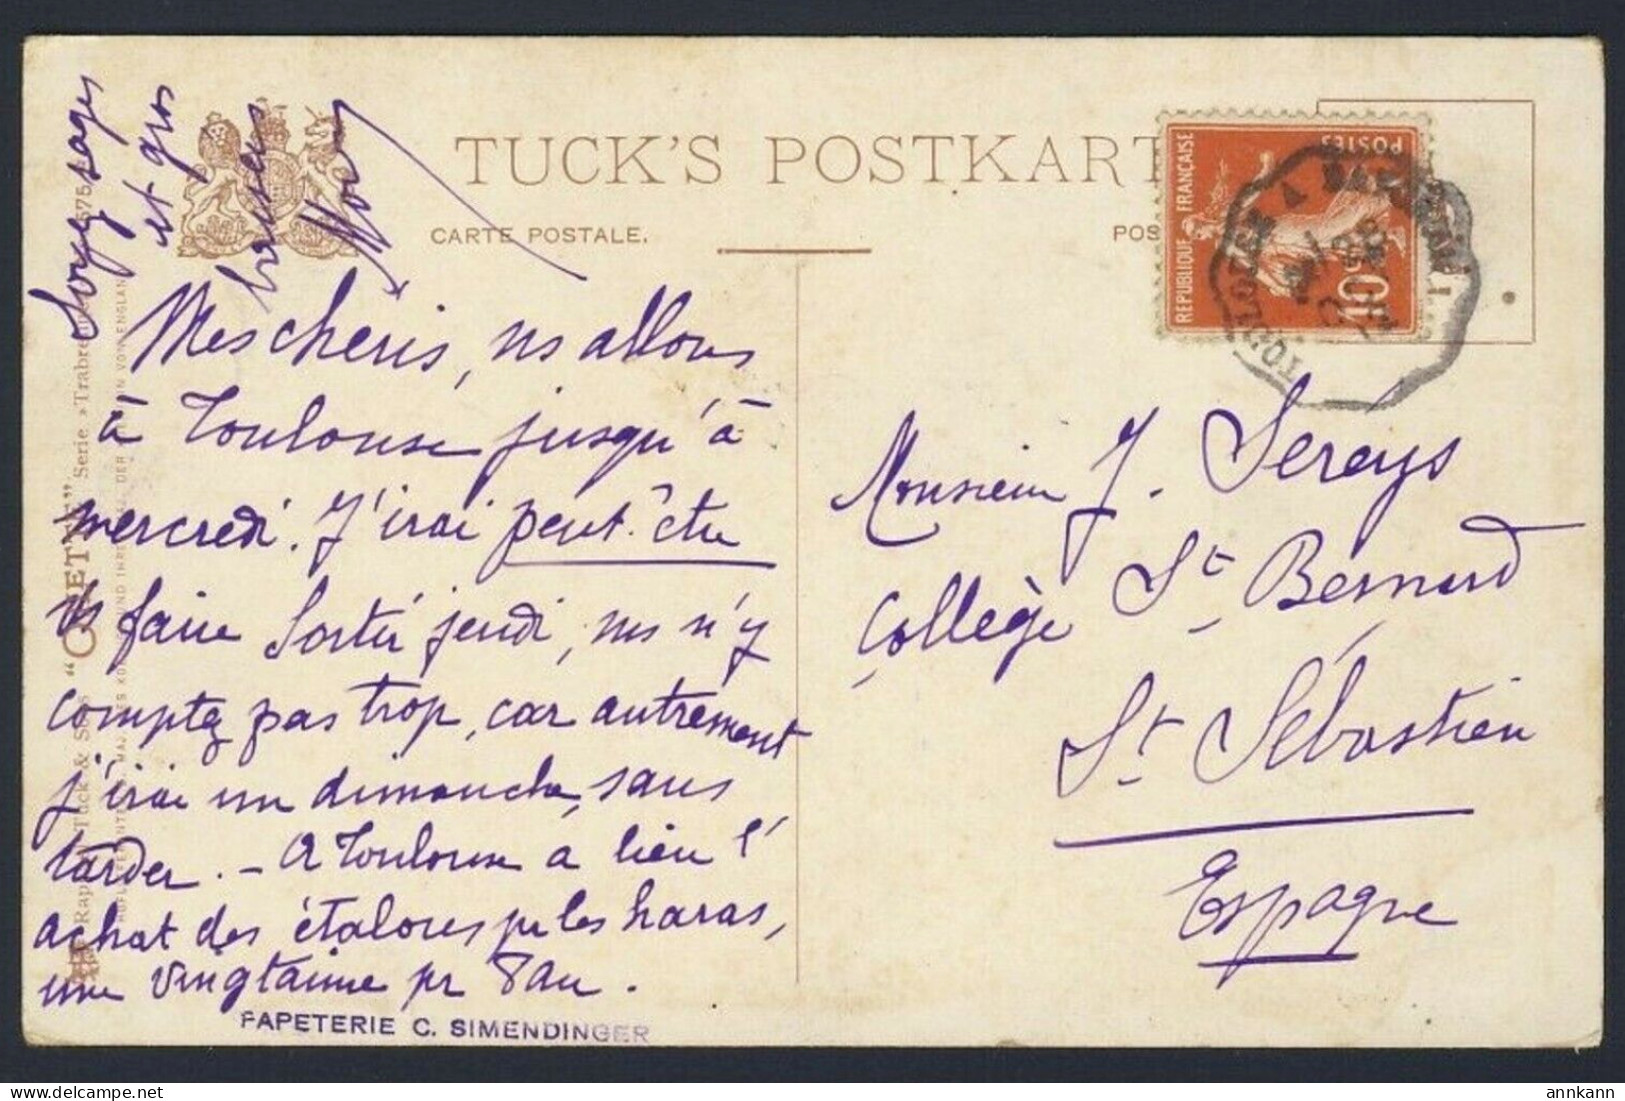 TUCK'S POSTKART
CARTE POSTALE.
POS
REPUBLIQUE FRANÇAISE
POSTES
10c
TOULOUSE A
Soyez sages
et gros
baisers
Mes chéris, ns allons
à Toulouse jusqu'à
mercredi. J'irai peut-être
vs faire sortir jeudi, mais n'y
comptez pas trop, car autrement
j'irai un dimanche, sans
tarder. - A Toulouse a lieu l'
achat des étalons pr les haras,
une vingtaine pr Pau.
PAPETERIE C. SIMENDINGER
Monsieur J. Séreys
Collège St Bernard
St Sébastien
Espagne
Serie
VON ENGLAND
annkann